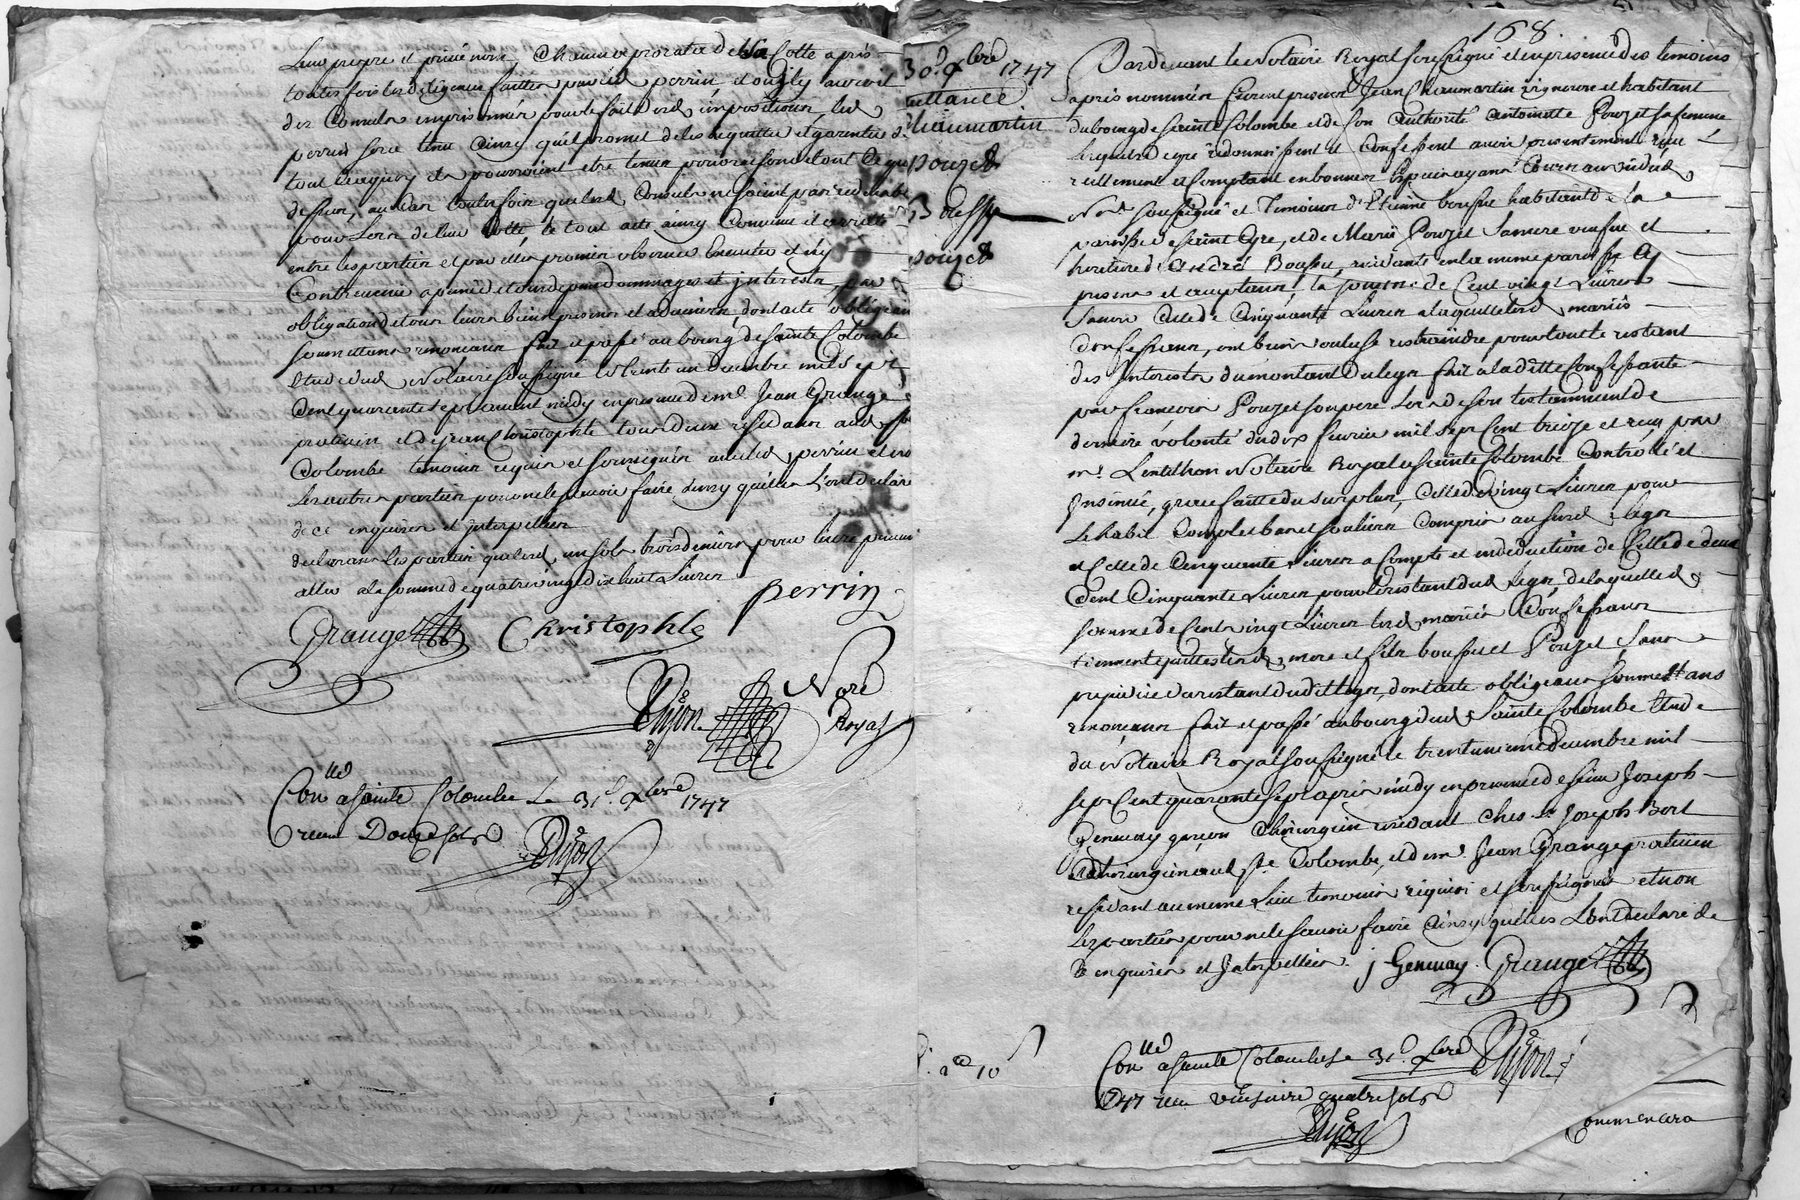 Leur propre et privé nom, Chacun au prorata de sa Cotte après
toutes fois les diligences faittes par led perrin, et ou ils auroient
des Consuls emprisonnés pour le fait desd impositions, led
perrin sera tenu ainsy qu'il promet de les acquitter et garentir de
tout ce à quoy ils pourroient etre tenus pour raison de tout ce que
dessus, au Cas toutes fois que lesd Consuls ne soient pas redevables
pour Lors de leur Cotte, le tout acte ainsy Convenu et arretté
entre les parties et par elles promis observer Executer et n'y
Contrevenir a peine de tous depens dommages et interests, par
obligation de tous leurs biens presens et advenirs, dont acte obligeans
soumettans renonceans fait et passé au bourg de Sainte Colombe
Etude dud Notaire soussigné le trente un decembre mil sept
Cent quarante sept avant midy en presence de mr Jean Grange
praticien et de jean Christophle tous deux residans aud Ste
Colombe temoins requis et soussignés avec led perrin et non
les autres parties pour ne le scavoir faire ainsy qu'elles L'ont declaré
de ce enquises et interpellées
declarans les parties que lesd un sols trois deniers pour livre peuvent
aller a la somme de quatre vingt dix huit Livres
perrin
Grange Christophle
Dijon Nore
Royal
Conllé a Sainte Colombe Le 31e Xbre 1747
reçu Douze sols
Dijon
168.
30e Xbre 1747
quittance
Chaumartin
pouzet
Boussu
pouzet
Pardevant le Notaire Royal soussigné et en presence des temoins
apres nommés furent presens Jean Chaumartin vigneron et habitant
du bourg de Sainte Colombe et de son authorité antoinette Pouzet sa femme
lesquels de gré reconnoissent et Confessent avoir presentement receu
reellement et Comptant en bonnes Especes ayans Cours au vû dud
Nore soussigné et Temoins d'Etienne boussu habitant de la
parroisse de Saint Cyre, et de Marie Pouzet sa mere veufve et
heritiere d'andré Boussu, residante en la meme parroisse Cy
presens et acceptans, la somme de Cent vingt Livres
Savoir Celle de Cinquante Livres a laquelle lesd mariés
Confessans, ont bien voulu se restraindre pour tout le restant
des interests du montant du legs fait a la ditte Confessante
par francois Pouzet son pere Lors de son testamment de
derniere volonté du dix fevrier mil sept Cent treize et reçu par
mr Lentilhon Notaire Royal a Sainte Colombe Controllé et
Insinué, grace faitte du surplus, Celle de vingt Livres pour
le habit Complet bas et souliers Compris au susd legs
et Celle de Cinquante Livres a Compte et en deduction de Celle de deux
Cent Cinquante Livres pour le restant dud legs, de laquelle
somme de Cent vingt Livres lesd mariés Confessans
tiennent quittes lesd mere et fils boussu et Pouzet Sans
prejudice du restant dudit legs, dont acte obligeans soumettans
renonceans fait et passé au bourg dud Sainte Colombe Etude
du Notaire Royal soussigné le trente unieme decembre mil
sept Cent quarante sept apres midy en presence de sieur Joseph
Genevay garçon Chirurgien residant ches sr Joseph Bort
Chirurgien aud Ste Colombe, et de mr Jean Grange praticien
residant au meme Lieu temoins requis et soussignés et non
les parties pour ne le scavoir faire ainsy qu'elles L'ont declaré de
ce enquises et Interpellées. j Genevay. Grange
Conllé a Sainte Colombe Le 31e Xbre Dijon
1747 reçu vingt quatre sols
Dijon